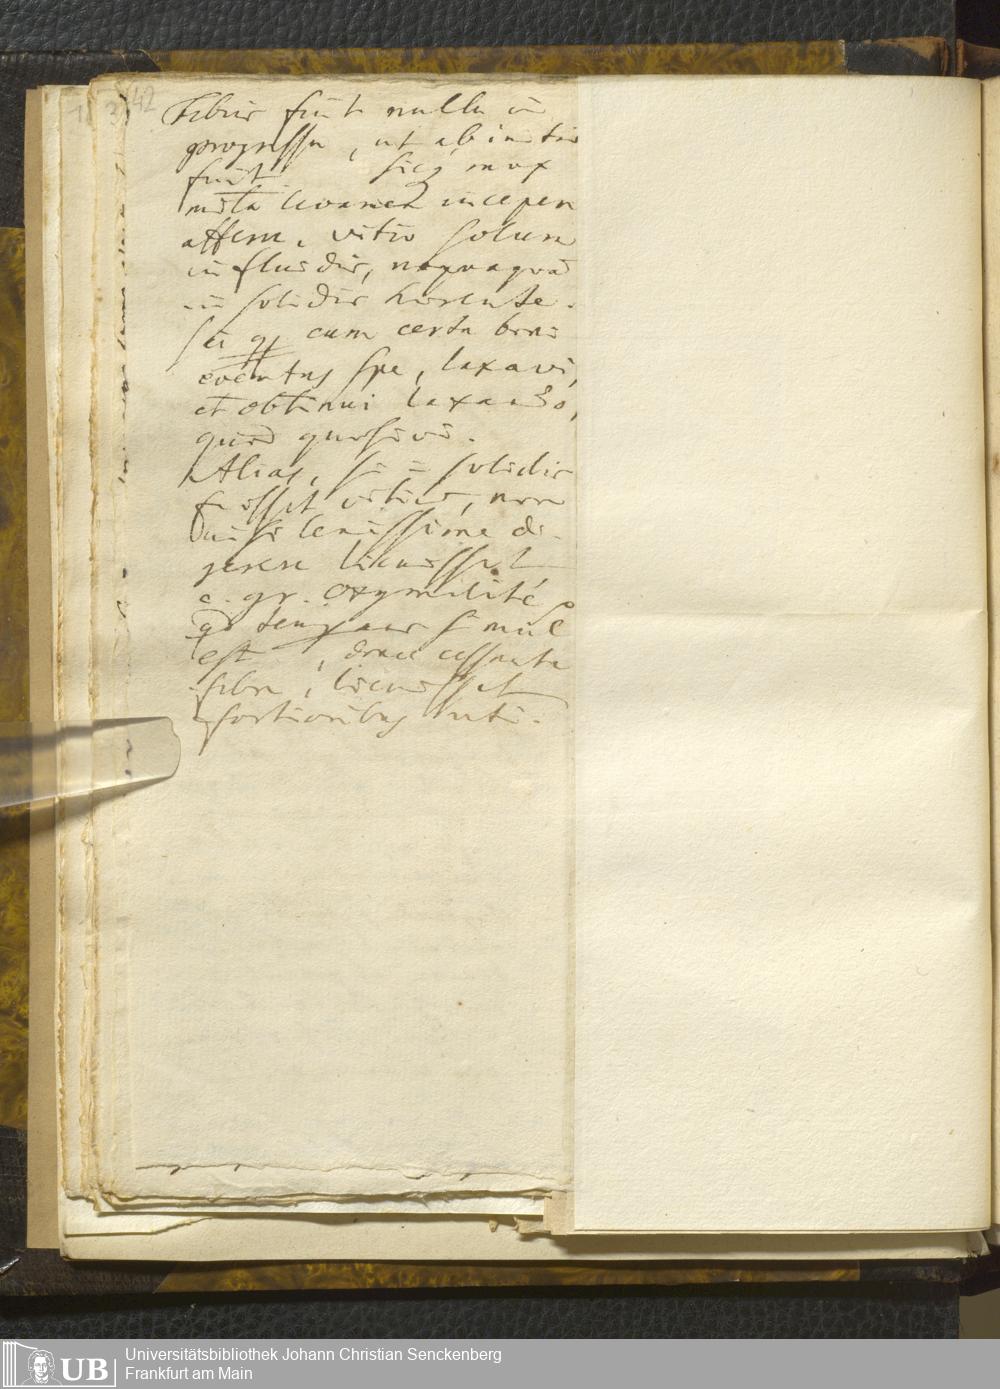 142
Febris fuit nulla in
progressu, ut ab initio
fuit. sicq mox
mista levamen incepere
afferre, vitio solum
in fluidis, nequaquā
in solidis haerente.
cum certa boni
eventus spe, laxavi,
et obtinui laxando,
quod quaesivi.
Alias, si in solidis
fuisset vitium, non
nisi lenissime di-
gerere licuisset
e. gr. oxymelite,
qd temperans simul
est, donec cessante
febre, licuisset
fortioribus uti.
UB
Universitätsbibliothek Johann Christian Senckenberg
Frankfurt am Main